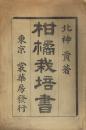 北神貢著
柑橘栽培書
東京 裳華房發行